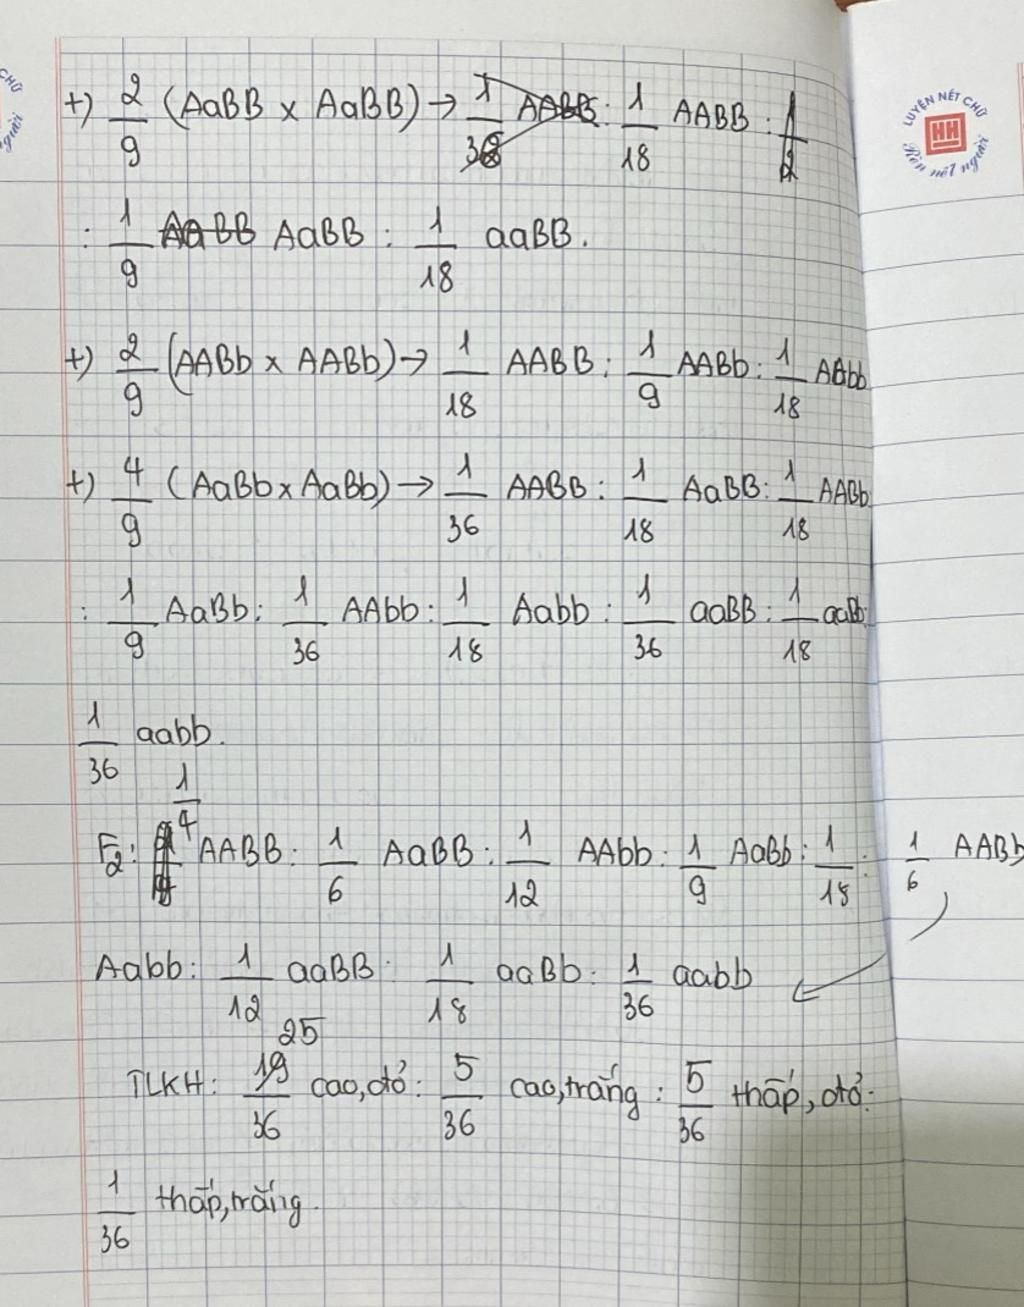 +) 2/9 (AaBB x AaBB) → 1/36 AABB : 1/18 AABB : 1/2
: 1/9 AaBB AaBB : 1/18 aaBB.
+) 2/9 (AABb x AABb) → 1/18 AABB : 1/9 AABb : 1/18 AAbb
+) 4/9 (AaBb x AaBb) → 1/36 AABB : 1/18 AaBB : 1/18 AABb
: 1/9 AaBb : 1/36 AAbb : 1/18 Aabb : 1/36 aaBB : 1/18 aaBb
1/36 aabb.
F2: 1/4 AABB : 1/6 AaBB : 1/12 AAbb : 1/9 AaBb : 1/18 : 1/6 AABb
Aabb : 1/12 aaBB : 1/18 aaBb : 1/36 aabb
25
TLKH: 19/36 cao, đỏ : 5/36 cao, trắng : 5/36 thấp, đỏ :
1/36 thấp, trắng.
LUYỆN NÉT CHỮ
HH
Rèn nết người
CHỮ
người